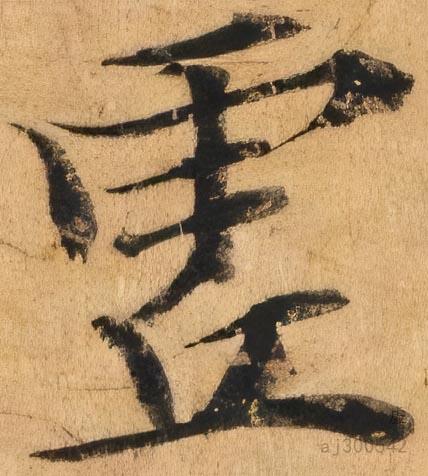 虛
aj300542